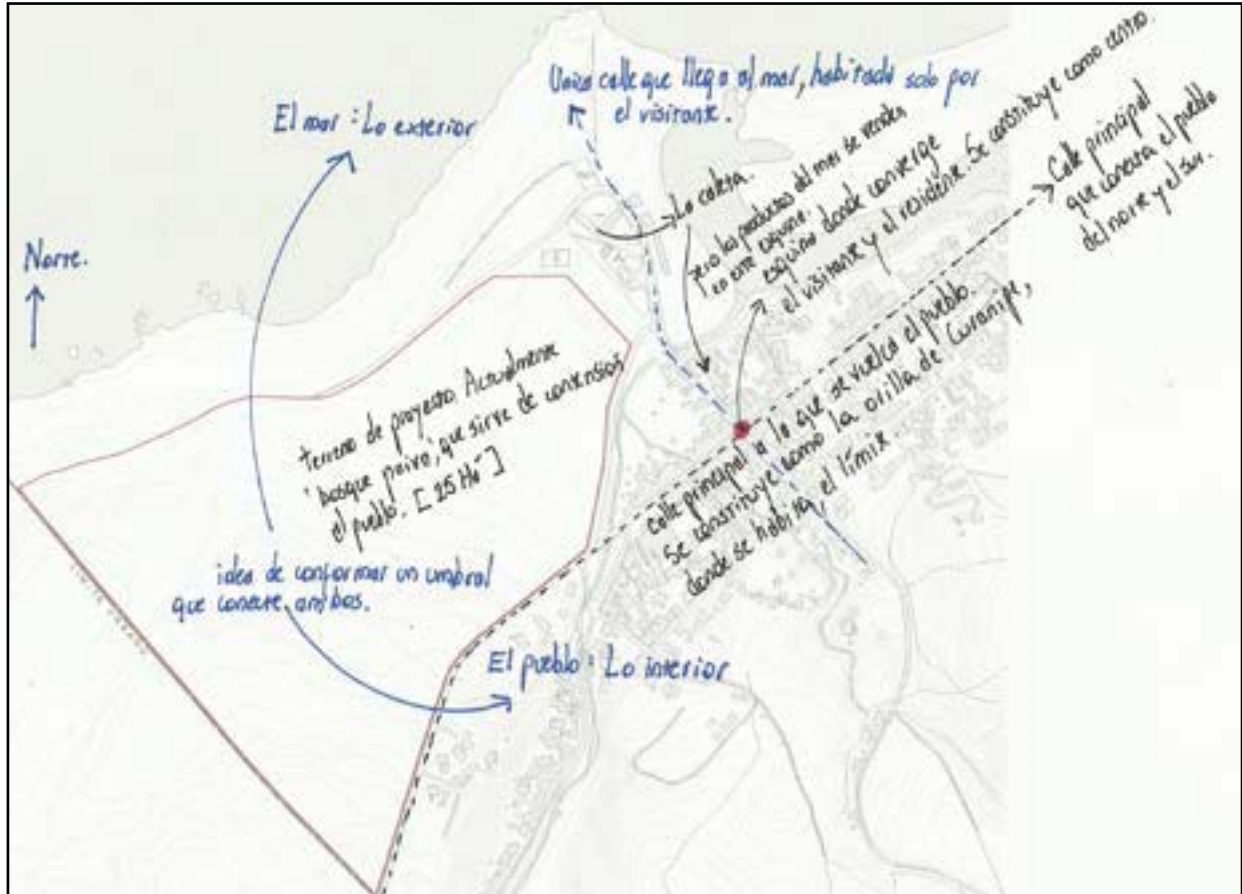 Unica calle que llega al mar, habitada solo por
el visitante.
El mar : Lo exterior
Norte.
La caleta.
pero los productos del mar se venden
en esta esquina.
esquina donde converge
el visitante y el residente. Se constituye como centro.
Calle principal
que conecta el pueblo
del norte y el sur.
terreno de proyecto. Actualmente
'bosque privo', que sirve de contension
el pueblo. [25 Há]
calle principal a lo que se vuelca el pueblo.
Se constituye como la orilla de Curanipe,
donde se habita, el límite.
idea de conformar un umbral
que conecte ambos.
El pueblo : Lo interior
LIMITE URBANO